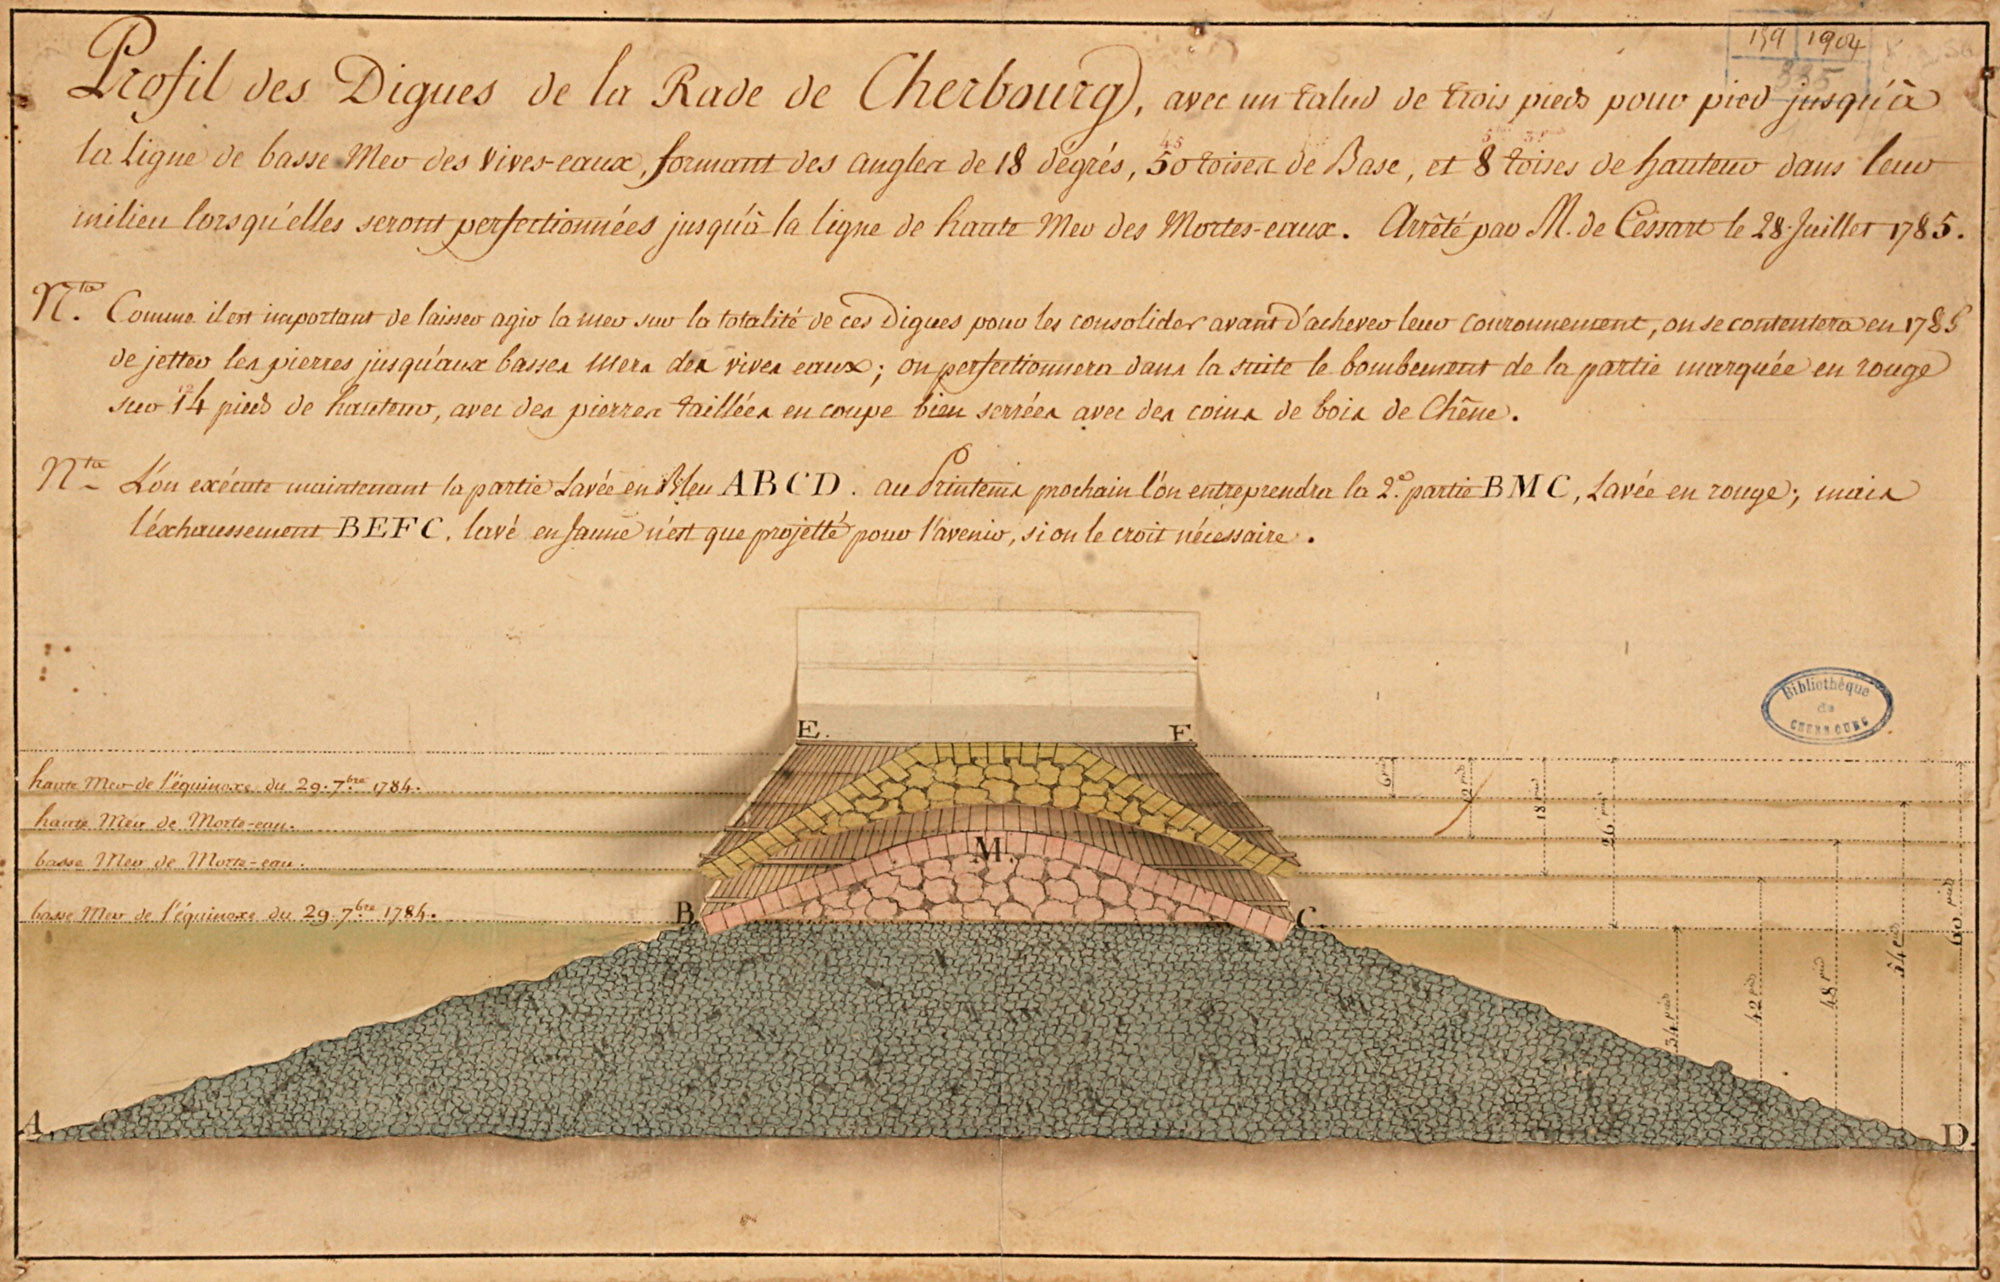 159 1904
335
Profil des Digues de la Rade de Cherbourg, avec un talud de trois pieds pour pied jusqu'à
45
la Ligne de basse Mer des vives-eaux, formant des angles de 18 dégrés, 50 toises de Base, et 8 toises de hauteur dans leur
milieu lorsqu'elles seront perfectionnées jusqu'à la ligne de haute Mer des Mortes-eaux. Arrêté par M. de Cessart le 28 Juillet 1785.
Nta. Comme il est important de laisser agir la mer sur la totalité de ces Digues pour les consolider avant d'achever leur couronnement, on se contentera en 1785
de jetter les pierres jusqu'aux basses mers des vives eaux; on perfectionnera dans la suite le bombement de la partie marquée en rouge
12
sur 14 pieds de hauteur, avec des pierres taillées en coupe bien serrées avec des coins de bois de Chêne.
Nta. L'on exécute maintenant la partie Lavée en Bleu ABCD. au Printems prochain l'on entreprendra la 2e. partie BMC, Lavée en rouge; mais
l'éxhaussement BEFC. lavé en Jaune n'est que projetté pour l'avenir, si on le croit nécessaire.
Bibliothèque
de
CHERBOURG
E. F.
haute Mer de l'équinoxe du 29. 7bre 1784.
haute Mer de Morte-eau.
basse Mer de Morte-eau.
basse Mer de l'équinoxe du 29. 7bre 1784.
M.
B. C
6 pieds
12 pieds
18 pieds
26 pieds
34 pieds
42 pieds
48 pieds
54 pieds
60 pieds
A D.